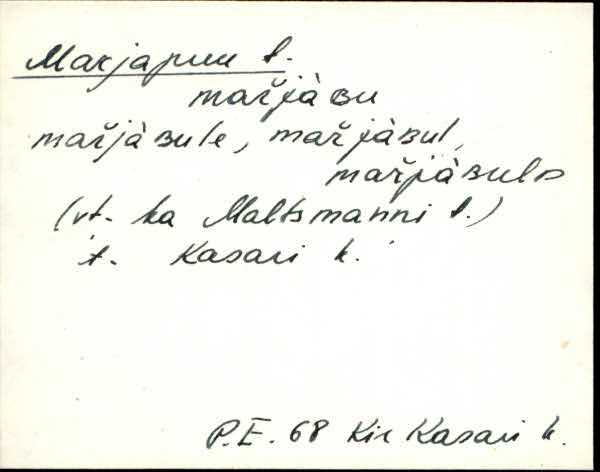 Marjapuu t.
mar̆jàʙu
mar̆jàʙule, mar̆jàʙul,
mar̆jàʙulᴅ
(vt. ka Maltsmanni t.)
t. Kasari k.
P.E. 68 Kir Kasari k.